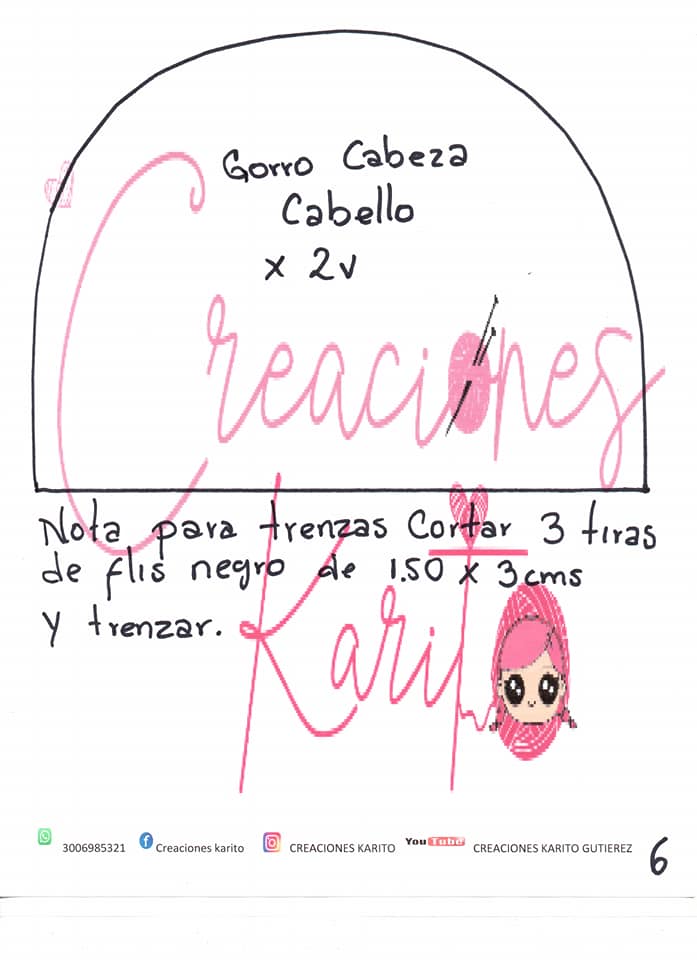 Gorro Cabeza
Cabello
x 2v
Creaciones
Nota para trenzas Cortar 3 tiras
de flis negro de 1.50 x 3cms
y trenzar.
Karito
3006985321 Creaciones karito CREACIONES KARITO YouTube CREACIONES KARITO GUTIEREZ
6